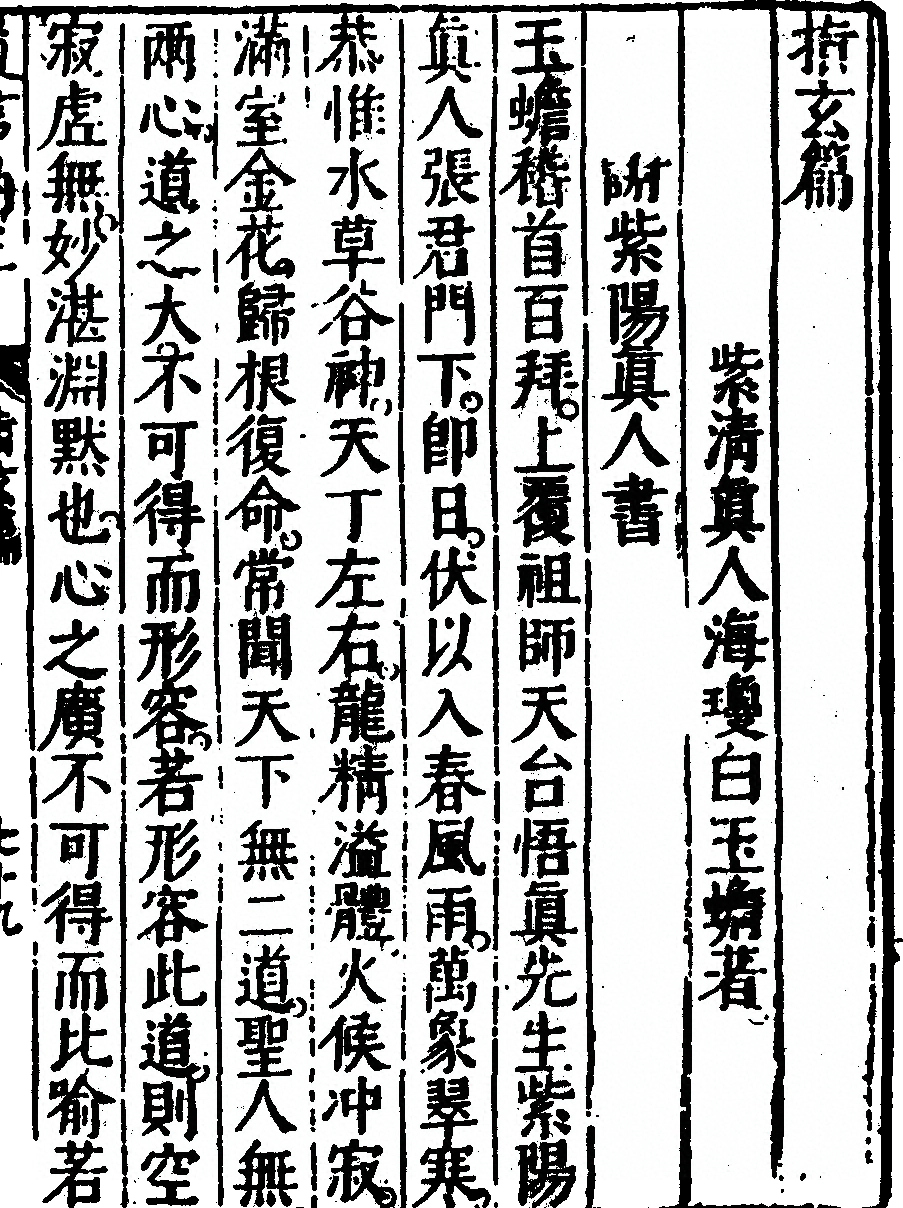 指玄篇
紫淸眞人海瓊白玉蟾著
附紫陽眞人書
玉蟾稽首百拜上覆祖師天台悟眞先生紫陽
眞人張君門下卽日伏以入春風雨萬象翠寒
恭惟水草谷神天丁左右龍精溢體火候冲寂
滿室金花歸根復命常聞天下無二道聖人無
兩心道之大不可得而形容若形容此道則空
寂虛無妙湛淵默也心之廣不可得而比喻若